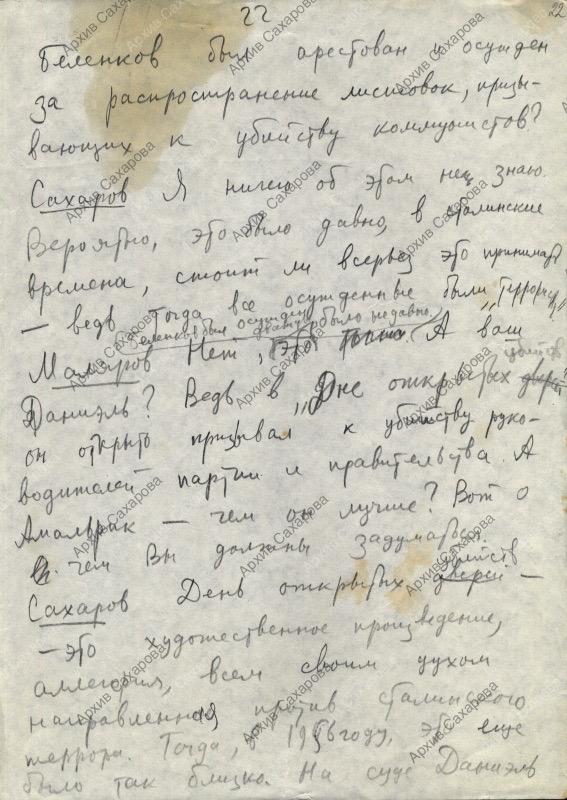 22
22
Беленков был арестован и осужден
за распространение листовок, призы-
вающих к убийству коммунистов?
Сахаров Я ничего об этом не знаю.
Вероятно, это было давно, в сталинские
времена, стоит ли всерьез это принимать?
— ведь тогда все осужденные были „террорист"
Беленков был осужден
это было недавно.
Маляров Нет, это А ваш
убийств
Даниэль? Ведь в „Дне открытых дверей"
он открыто призывал к убийству руко-
водителей партии и правительства. А
Амальрик — чем он лучше? Вот о
чем Вы должны задуматься.
убийств
Сахаров День открытых дверей —
— это художественное произведение,
аллегория, всем своим духом
направленная против сталинского
террора. Тогда, в 1956 году, это еще
было так близко. На суде Даниэль
Архив Сахарова